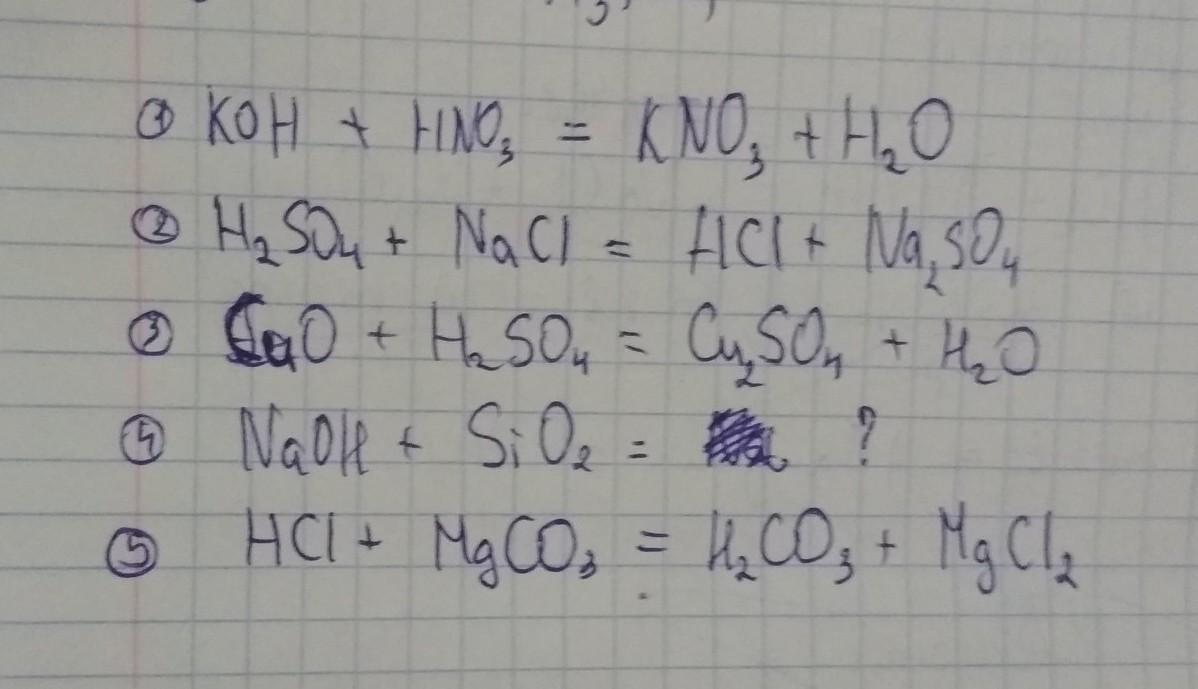 ① KOH + HNO₃ = KNO₃ + H₂O
② H₂SO₄ + NaCl = HCl + Na₂SO₄
③ CaO + H₂SO₄ = Cu₂SO₄ + H₂O
④ NaOH + SiO₂ = ?
⑤ HCl + MgCO₃ = H₂CO₃ + MgCl₂